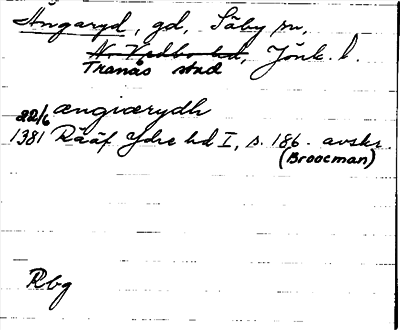 Ängaryd, gd, Säby sn,
N. Vedbo hd, Jönk. l.
Tranås stad
22/6 ængiærydh
1381 Rääf Ydre hd I, s. 186. avskr.
(Broocman)
Rbg